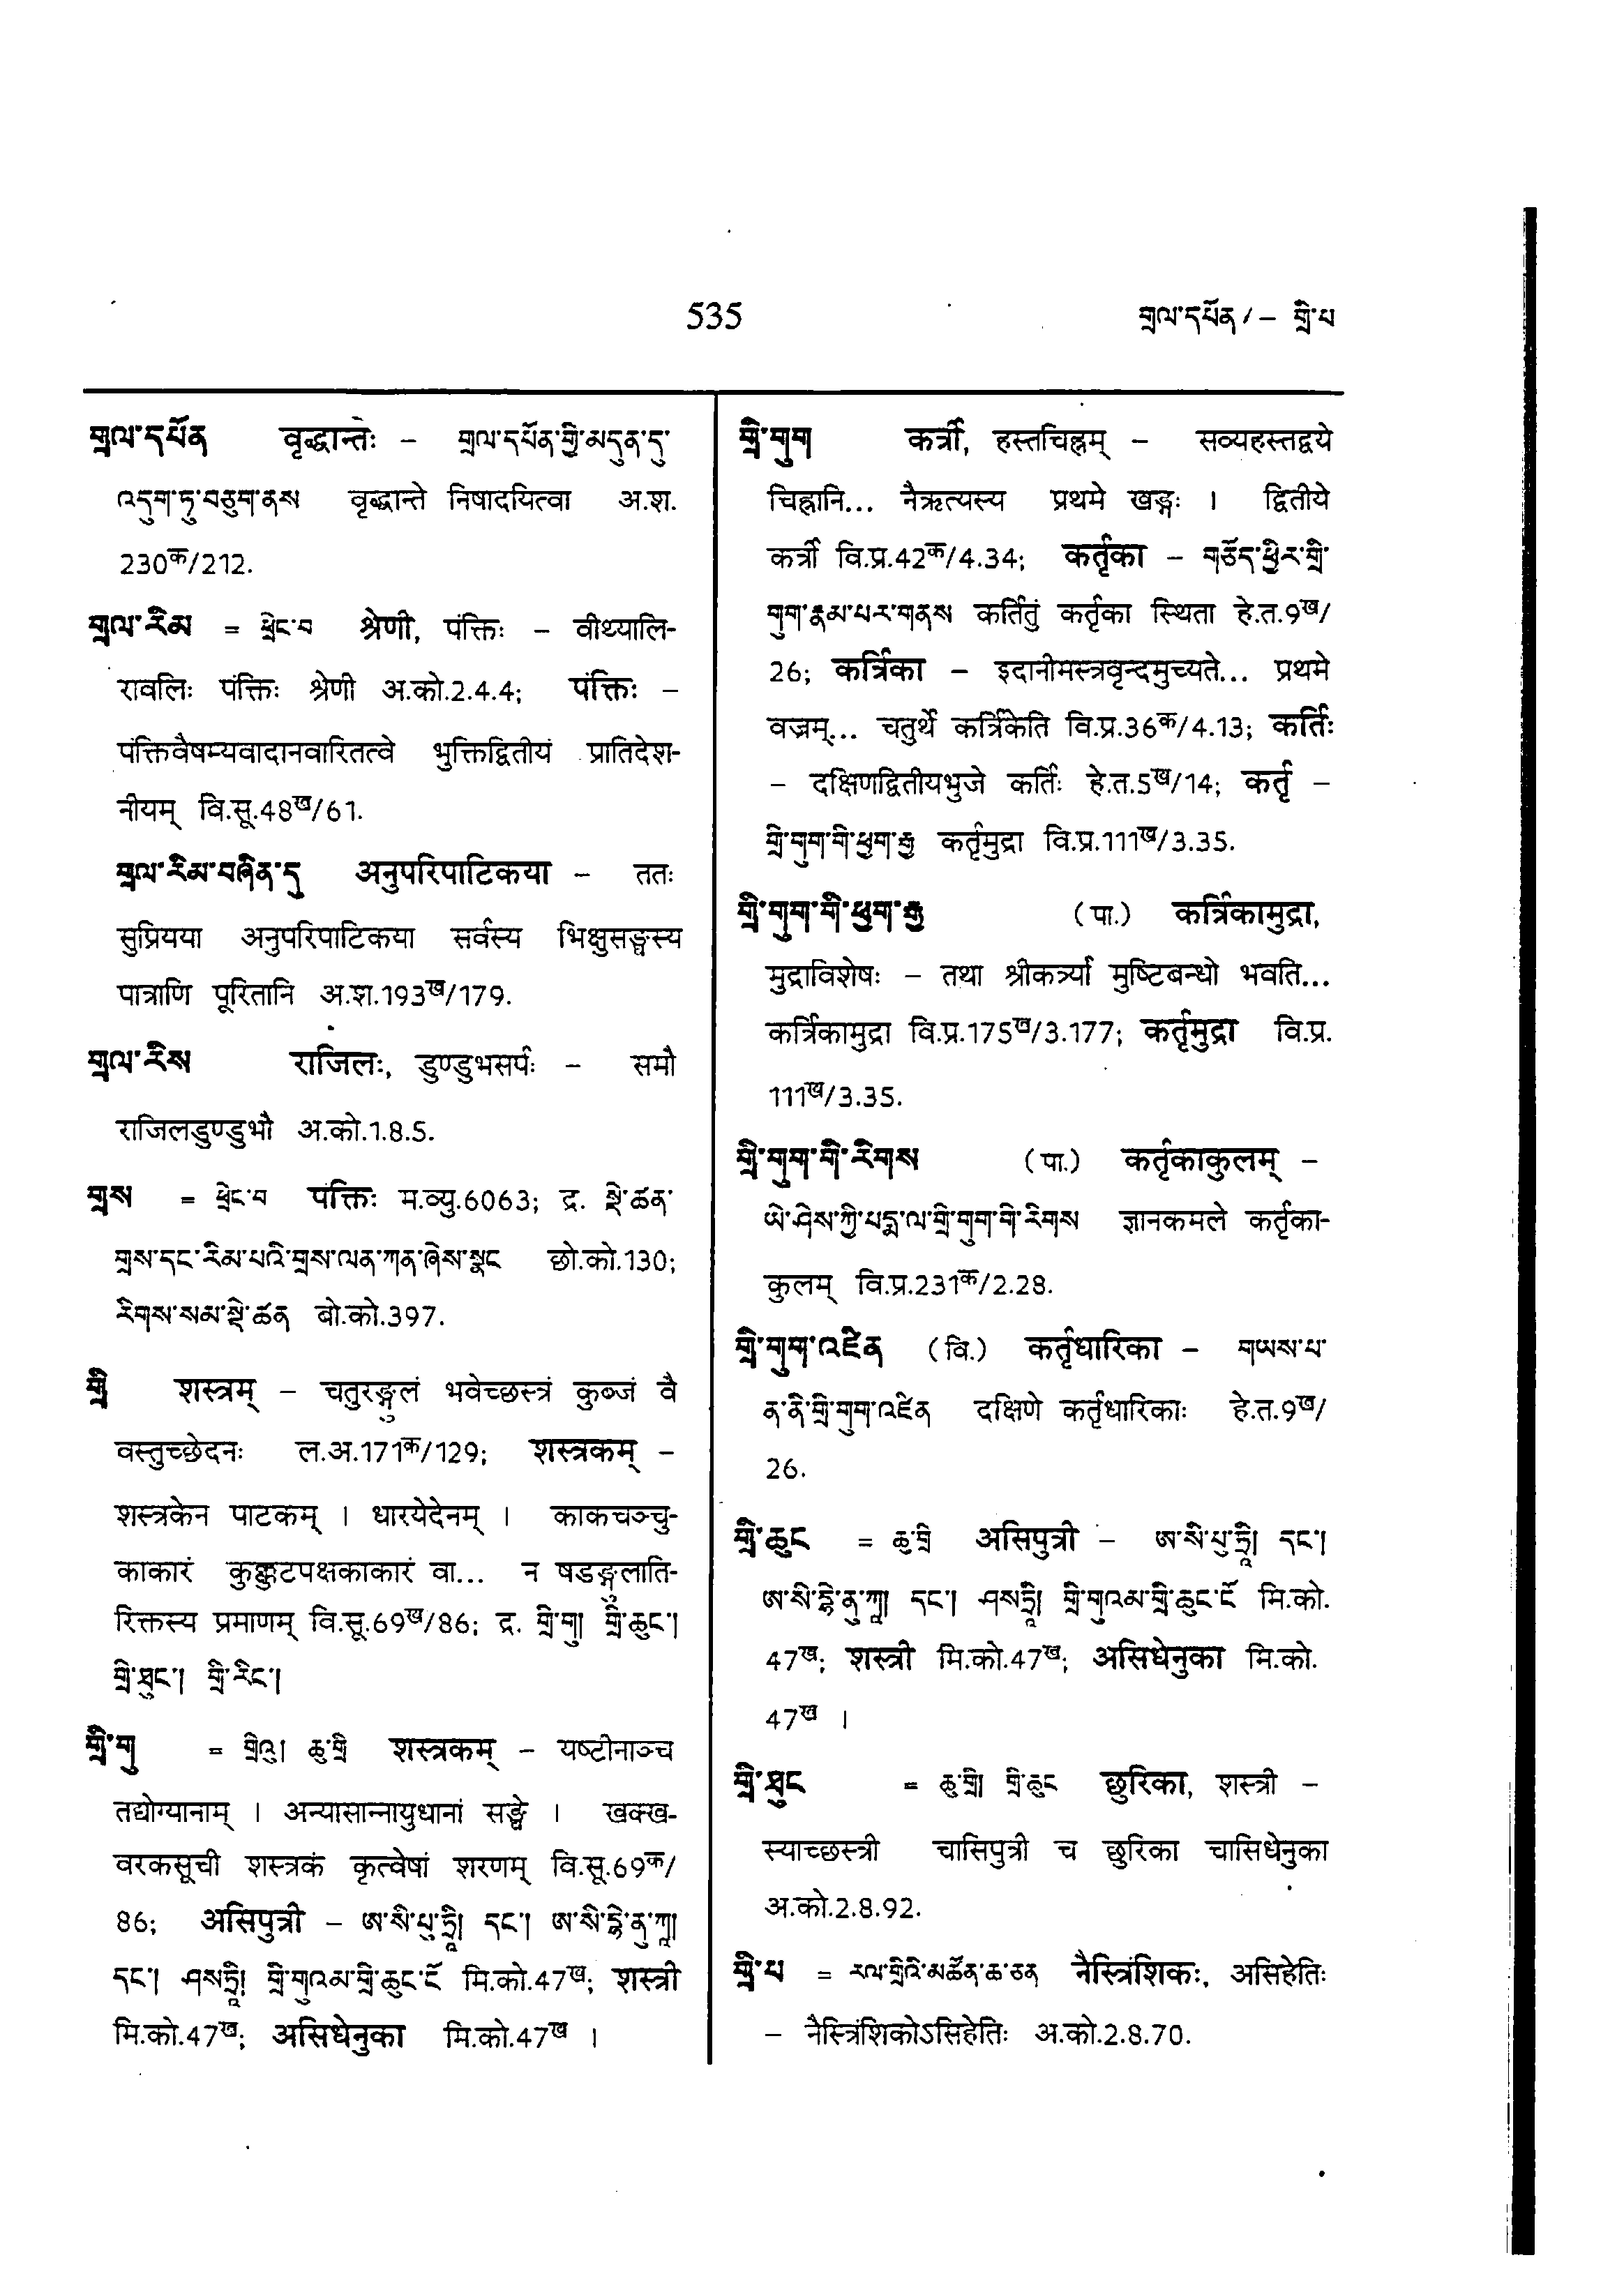 535
གྲལ་དཔོན / – གྲི་པ
གྲལ་དཔོན वृद्धान्तः – གྲལ་དཔོན་གྱི་མདུན་དུ་
འདུག་ཏུ་བཅུག་ནས वृद्धान्ते निषादयित्वा अ.श.
230क/212.
གྲལ་རིམ = ཕྲེང་བ श्रेणी, पंक्तिः – वीथ्यालि-
रावलिः पंक्तिः श्रेणी अ.को.2.4.4; पंक्तिः –
पंक्तिवैषम्यवादानवारितत्वे भुक्तिद्वितीयं प्रातिदेश-
नीयम् वि.सू.48ख/61.
གྲལ་རིམ་བཞིན་དུ अनुपरिपाटिकया – ततः
सुप्रियया अनुपरिपाटिकया सर्वस्य भिक्षुसङ्घस्य
पात्राणि पूरितानि अ.श.193ख/179.
གྲལ་རིས राजिलः, डुण्डुभसर्पः – समौ
राजिलडुण्डुभौ अ.को.1.8.5.
གྲས = ཕྲེང་བ पंक्तिः म.व्यु.6063; द्र. སྡེ་ཚན་
གྲས་དང་རིམ་པའི་གྲས་ལན་ཀན་ཞེས་སྣང छो.को.130;
རིགས་སམ་སྡེ་ཚན बो.को.397.
གྲི शस्त्रम् – चतुरङ्गुलं भवेच्छस्त्रं कुब्जं वै
वस्तुच्छेदनः ल.अ.171क/129; शस्त्रकम् –
शस्त्रकेन पाटकम् । धारयेदेनम् । काकचञ्चु-
काकारं कुक्कुटपक्षकाकारं वा... न षडङ्गुलाति-
रिक्तस्य प्रमाणम् वि.सू.69ख/86; द्र. གྲི་གུ། གྲི་ཆུང་།
གྲི་ཐུང་། གྲི་རིང་།
གྲི་གུ = གྲིའུ། ཆུ་གྲི शस्त्रकम् – यष्टीनाञ्च
तद्योग्यानाम् । अन्यासान्नायुधानां सङ्घे । खक्ख-
वरकसूची शस्त्रकं कृत्वेषां शरणम् वि.सू.69क/
86; असिपुत्री – ཨ་སི་པུ་ཏྲཱི། དང་། ཨ་སི་དྷེ་ནུ་ཀཱ།
དང་། ཤསཏྲཱི། གྲི་གུའམ་གྲི་ཆུང་ངོ मि.को.47ख; शस्त्री
मि.को.47ख; असिधेनुका मि.को.47ख ।
གྲི་གུག कर्त्री, हस्तचिह्नम् – सव्यहस्तद्वये
चिह्नानि... नैऋत्यस्य प्रथमे खड्गः । द्वितीये
कर्त्री वि.प्र.42क/4.34; कर्तृका – གཅོད་ཕྱིར་གྲི་
གུག་རྣམ་པར་གནས कर्तितुं कर्तृका स्थिता हे.त.9ख/
26; कर्त्रिका – इदानीमस्त्रवृन्दमुच्यते... प्रथमे
वज्रम्... चतुर्थे कर्त्रिकेति वि.प्र.36क/4.13; कर्तिः
– दक्षिणद्वितीयभुजे कर्तिः हे.त.5ख/14; कर्तृ –
གྲི་གུག་གི་ཕྱག་རྒྱ कर्तृमुद्रा वि.प्र.111ख/3.35.
གྲི་གུག་གི་ཕྱག་རྒྱ (पा.) कर्त्रिकामुद्रा,
मुद्राविशेषः – तथा श्रीकर्त्र्या मुष्टिबन्धो भवति...
कर्त्रिकामुद्रा वि.प्र.175ख/3.177; कर्तृमुद्रा वि.प्र.
111ख/3.35.
གྲི་གུག་གི་རིགས (पा.) कर्तृकाकुलम् –
ཡེ་ཤེས་ཀྱི་པདྨ་ལ་གྲི་གུག་གི་རིགས ज्ञानकमले कर्तृका-
कुलम् वि.प्र.231क/2.28.
གྲི་གུག་འཛིན (वि.) कर्तृधारिका – གཡས་པ་
ན་ནི་གྲི་གུག་འཛིན दक्षिणे कर्तृधारिकाः हे.त.9ख/
26.
གྲི་ཆུང = ཆུ་གྲི असिपुत्री – ཨ་སི་པུ་ཏྲཱི། དང་།
ཨ་སི་དྷེ་ནུ་ཀཱ། དང་། ཤསཏྲཱི། གྲི་གུའམ་གྲི་ཆུང་ངོ मि.को.
47ख; शस्त्री मि.को.47ख; असिधेनुका मि.को.
47ख ।
གྲི་ཐུང = ཆུ་གྲི། གྲི་ཆུང छुरिका, शस्त्री –
स्याच्छस्त्री चासिपुत्री च छुरिका चासिधेनुका
अ.को.2.8.92.
གྲི་པ = རལ་གྲིའི་མཚོན་ཆ་ཅན नैस्त्रिंशिकः, असिहेतिः
– नैस्त्रिंशिकोऽसिहेतिः अ.को.2.8.70.